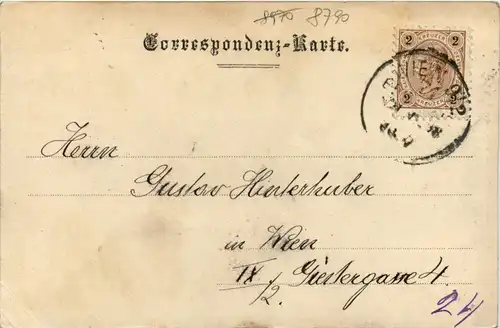 8970 8790
Correspondenz-Karte.
2 2
2 2
Herrn
Gustav Hinterhuber
in Wien
IX/2. Giestergasse 4.
24